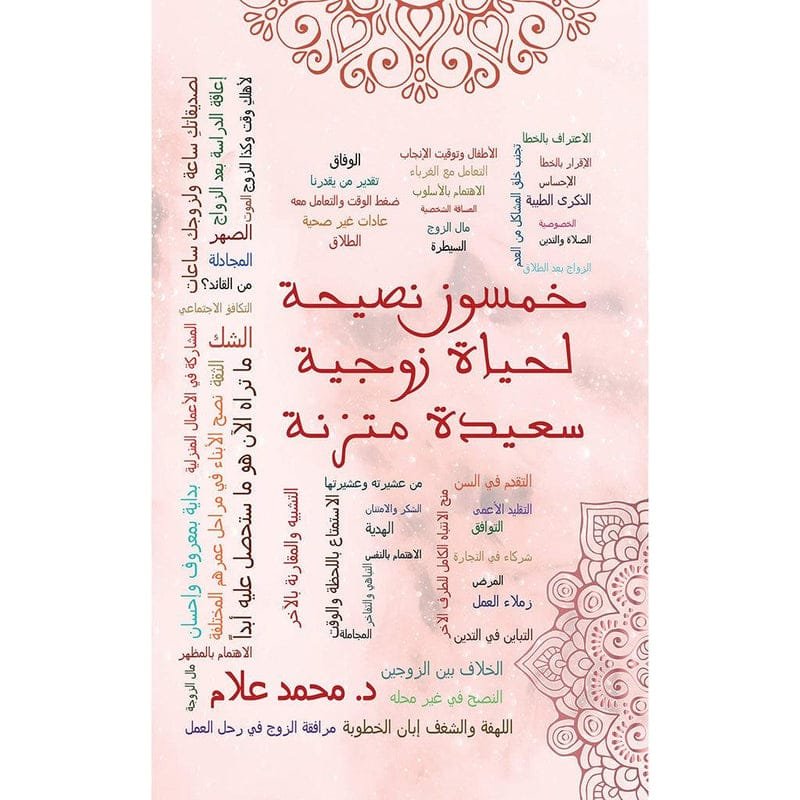 الاعتراف بالخطأ
الإقرار بالخطأ
الإحساس
الذكرى الطيبة
الخصوصية
الصلاة والتدين
الزواج بعد الطلاق
تجنب خلق المشاكل من العدم
الأطفال وتوقيت الإنجاب
التعامل مع الغرباء
الاهتمام بالأسلوب
المسافة الشخصية
مال الزوج
السيطرة
الوفاق
تقدير من يقدرنا
ضغط الوقت والتعامل معه
عادات غير صحية
الطلاق
لأهلكِ وقت وكذا للزوج
الموت
إعاقة الدراسة بعد الزواج
لصديقاتكِ ساعة ولزوجك ساعات
الصهر
المجادلة
من القائد؟
التكافؤ الاجتماعي
خمسون نصيحة
لحياة زوجية
سعيدة متزنة
الشك
الثقة
ما تراه الآن هو ما ستحصل عليه أبداً
نصح الأبناء في مراحل عمرهم المختلفة
المشاركة في الأعمال المنزلية
بداية بمعروف وإحسان
الاهتمام بالمظهر
مال الزوجة
التقدم في السن
التقليد الأعمى
التوافق
شركاء في التجارة
المرض
زملاء العمل
التباين في التدين
منح الانتباه الكامل للطرف الآخر
من عشيرته وعشيرتها
الشكر والامتنان
الهدية
الاهتمام بالنفس
التباهي والتفاخر
المجاملة
الاستمتاع باللحظة والوقت
التشبيه والمقارنة بالآخر
الخلاف بين الزوجين
د. محمد علام
النصح في غير محله
اللهفة والشغف إبان الخطوبة
مرافقة الزوج في رحل العمل